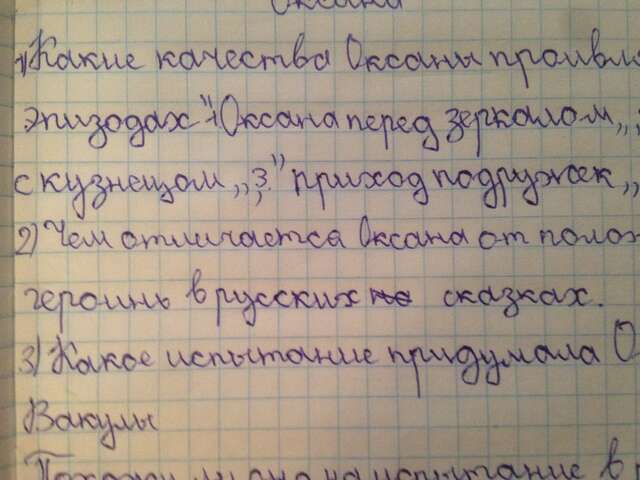 Оксаны
1) Какие качества Оксаны проявл
эпизодах "1 Оксана перед зеркалом,,
с кузнецом,, "3" приход подружек,,
2) Чем отличается Оксана от полож
героинь в русских сказках.
3) Какое испытание придумала О
Вакулы
ли оно на испытание в